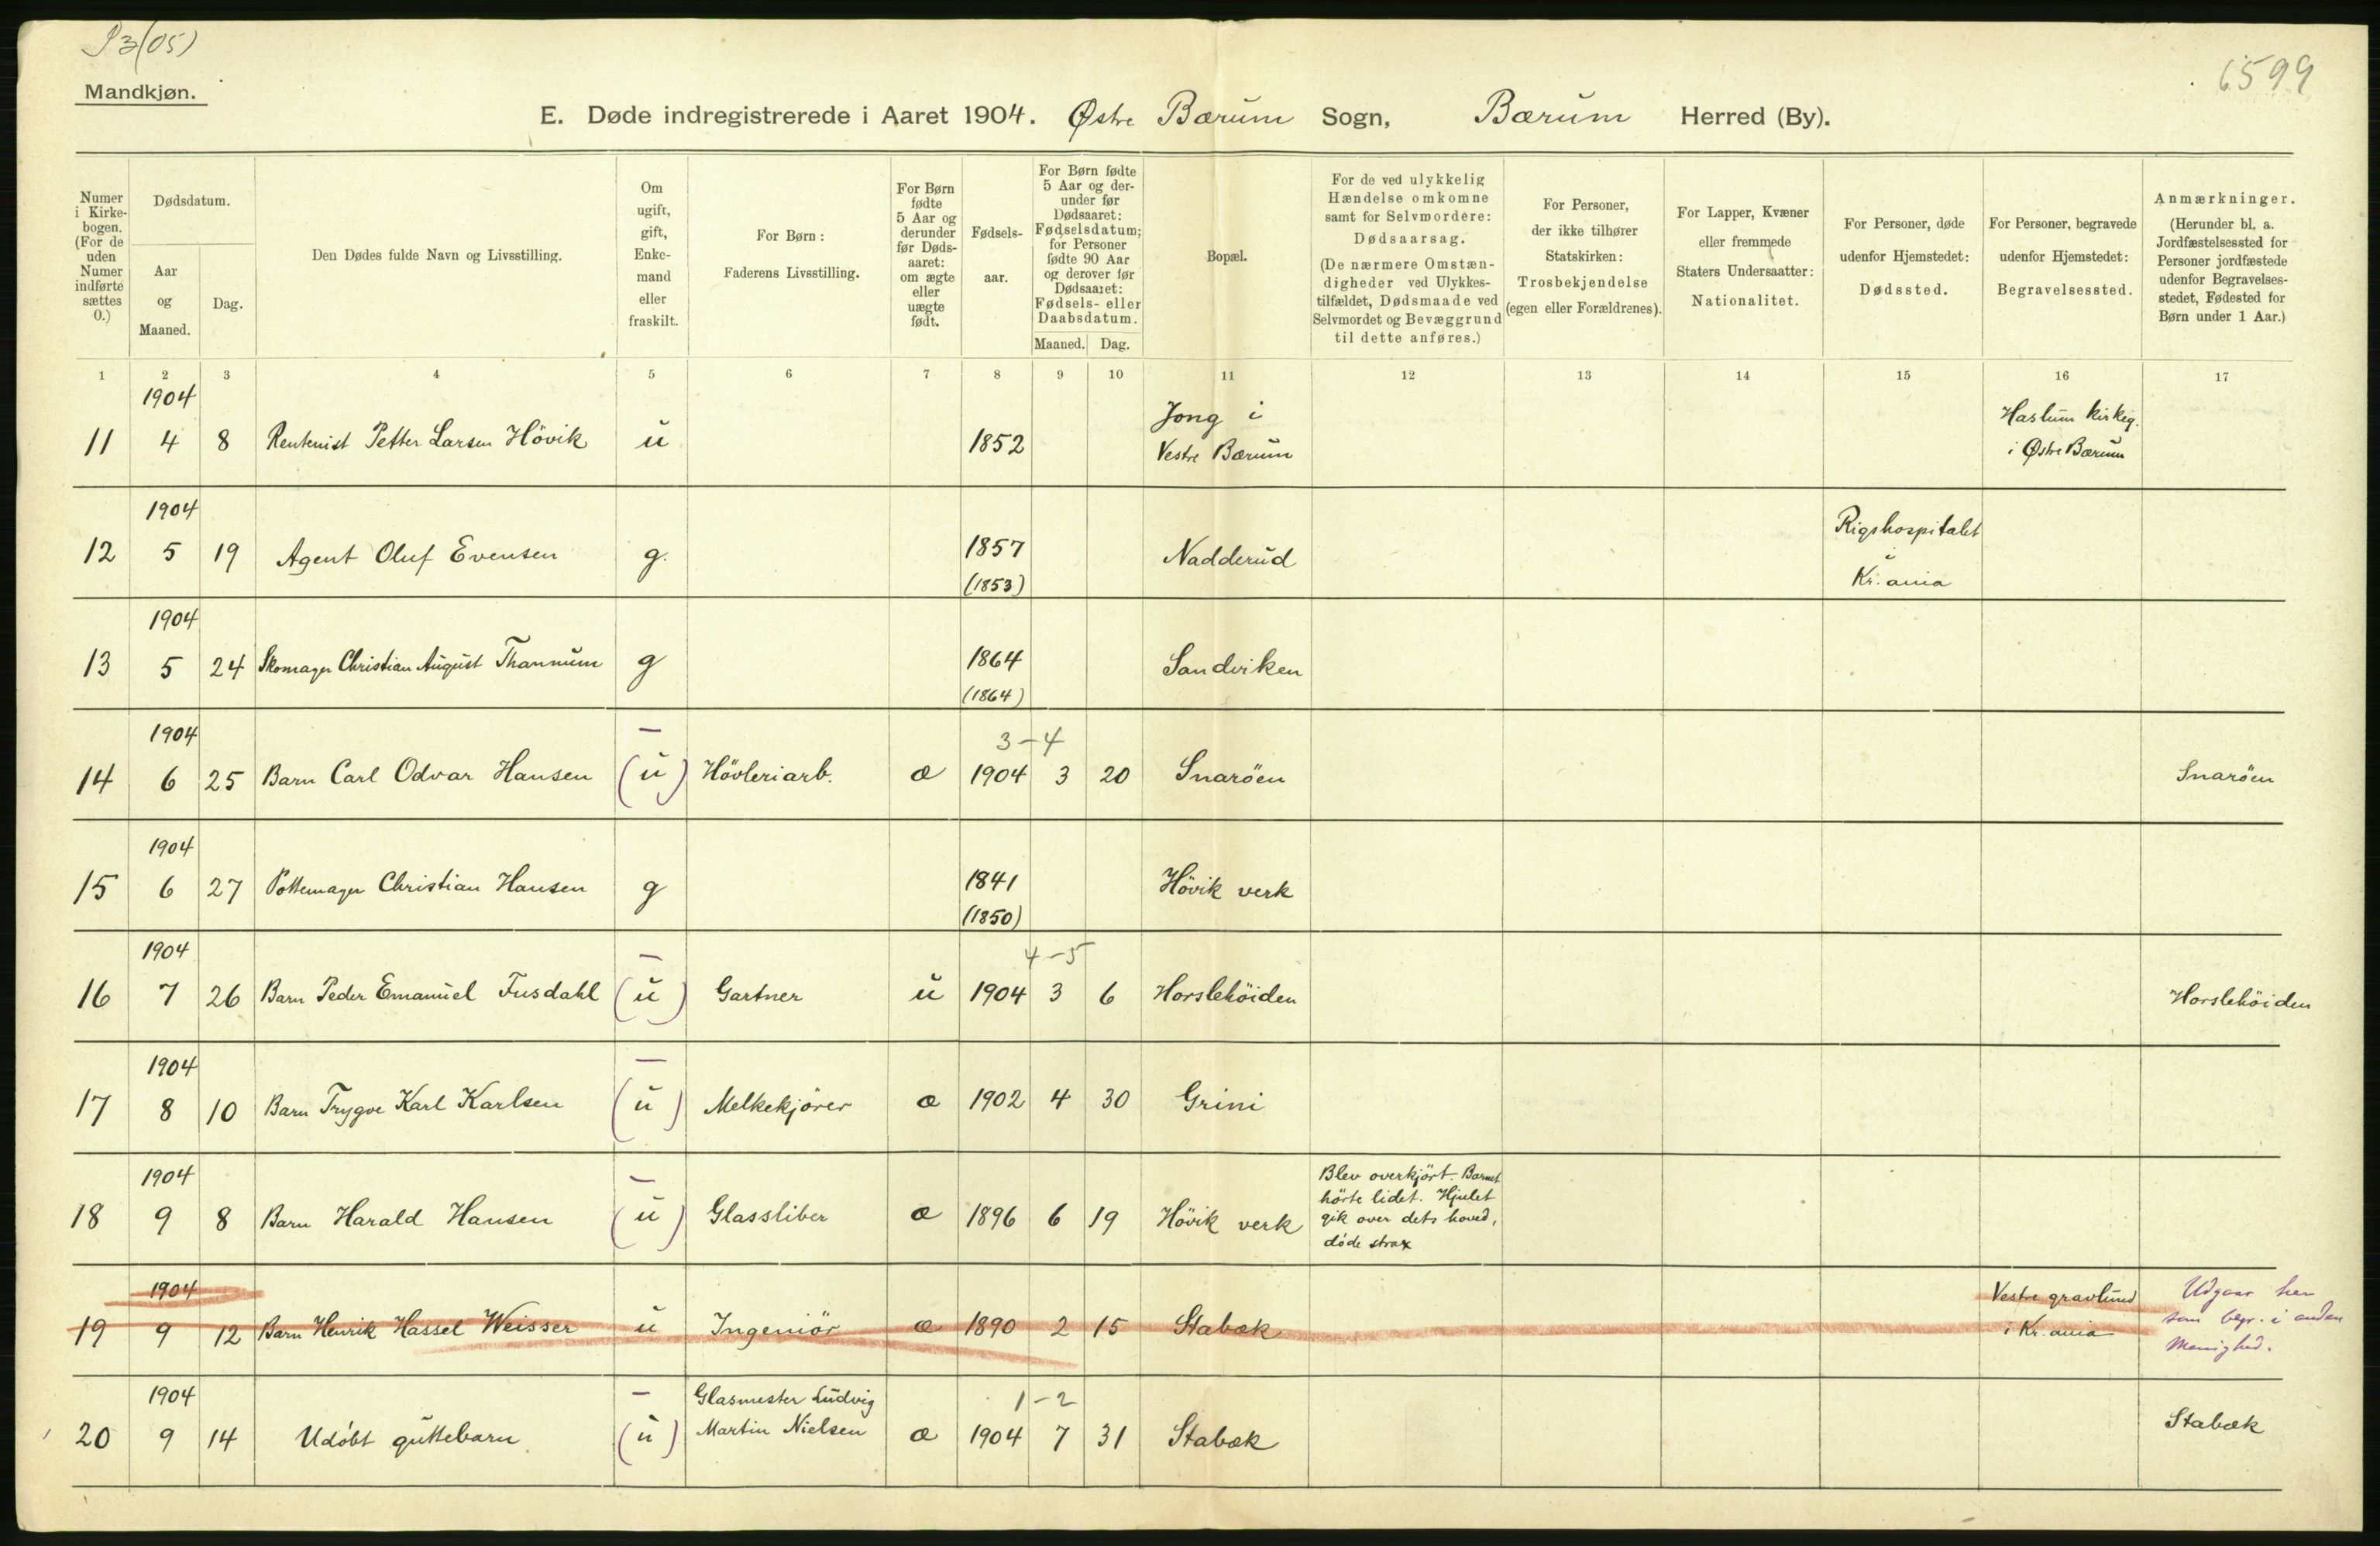 S3(05)
6599
Mandkjøn.
E. Døde indregistrerede i Aaret 1904. Østre Bærum Sogn, Bærum Herred (By).
Numer
i Kirke-
bogen.
(For de
uden
Numer
indførte
sættes
0.)
Dødsdatum.
Aar
og
Maaned.
Dag.
Den Dødes fulde Navn og Livsstilling.
Om
ugift,
gift,
Enke-
mand
eller
fraskilt.
For Børn:
Faderens Livsstilling.
For Børn
fødte
5 Aar og
derunder
før Døds-
aaret:
om ægte
eller
uægte
født.
Fødsels-
aar.
For Børn fødte
5 Aar og der-
under før
Dødsaaret:
Fødselsdatum;
for Personer
fødte 90 Aar
og derover før
Dødsaaret:
Fødsels- eller
Daabsdatum.
Maaned. Dag.
Bopæl.
For de ved ulykkelig
Hændelse omkomne
samt for Selvmordere:
Dødsaarsag.
(De nærmere Omstæn-
digheder ved Ulykkes-
tilfældet, Dødsmaade ved
Selvmordet og Bevæggrund
til dette anføres.)
For Personer,
der ikke tilhører
Statskirken:
Trosbekjendelse
(egen eller Forældrenes).
For Lapper, Kvæner
eller fremmede
Staters Undersaatter:
Nationalitet.
For Personer, døde
udenfor Hjemstedet:
Dødssted.
For Personer, begravede
udenfor Hjemstedet:
Begravelsessted.
Anmærkninger.
(Herunder bl. a.
Jordfæstelsessted for
Personer jordfæstede
udenfor Begravelses-
stedet, Fødested for
Børn under 1 Aar.)
1 2 3 4 5 6 7 8 9 10 11 12 13 14 15 16 17
1904 Jong i Haslum kirkeg.
11 4 8 Rentenist Petter Larsen Hövik u 1852 Vestre Bærum i Østre Bærum
1904 Rigshospitalet
12 5 19 Agent Oluf Evensen g. 1857 Nadderud i
(1853) Kr.ania
1904
13 5 24 Skomager Christian August Thannum g 1864 Sandviken
(1864)
1904 – 3-4
14 6 25 Barn Carl Odvar Hansen (u) Hövleriarb. æ 1904 3 20 Snaröen Snaröen
1904
15 6 27 Pottemager Christian Hansen g 1841 Hövik verk
(1850)
1904 – 4-5
16 7 26 Barn Peder Emanuel Fusdahl (u) Gartner u 1904 3 6 Horslehöiden Horslehöiden
1904 –
17 8 10 Barn Trygve Karl Karlsen (u) Melkekjörer æ 1902 4 30 Grini
1904 – Blev overkjört. Barnet
hörte lidet. Hjulet
18 9 8 Barn Harald Hansen (u) Glassliber æ 1896 6 19 Hövik verk gik over dets hoved,
döde strax
1904 Vestre gravlund Udgaar her
19 9 12 Barn Henrik Hassel Weisser u Ingeniör æ 1890 2 15 Stabæk i Kr.ania som begr. i anden
Menighed.
1904 – Glasmester Ludvig 1-2
20 9 14 Udöbt guttebarn (u) Martin Nielsen æ 1904 7 31 Stabæk Stabæk